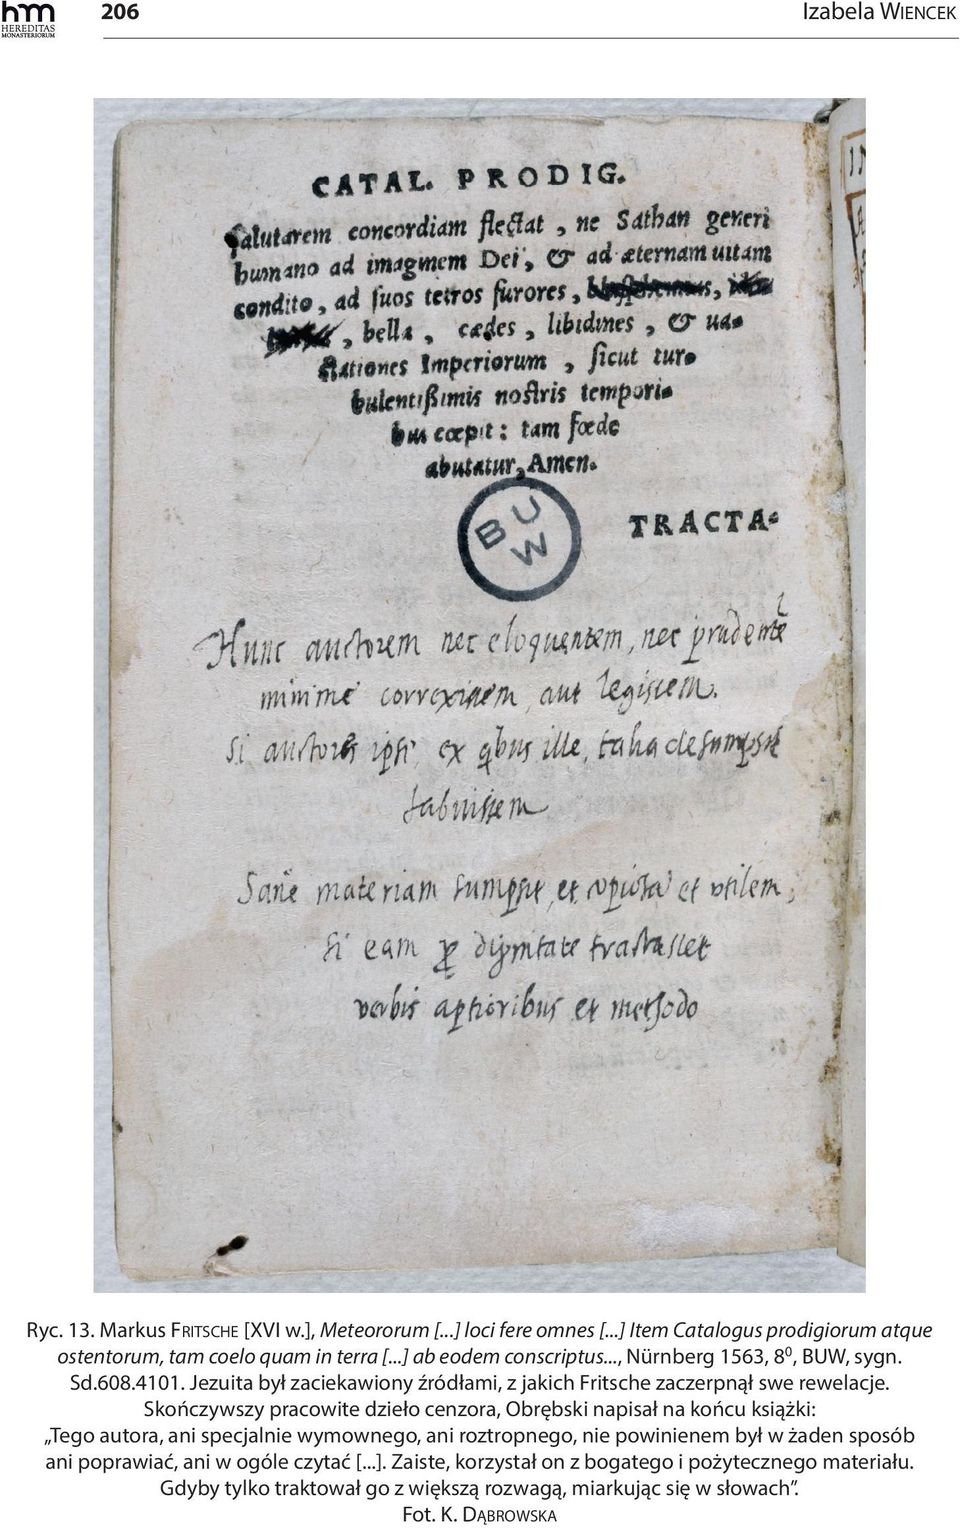 hm
HEREDITAS
MONASTERIORUM
206
Izabela WIENCEK
CATAL. PRODIG.
salutarem concordiam flectat, ne Sathan generi
humano ad imaginem Dei, & ad æternam uitam
condito, ad suos tetros furores,
, bella, cædes, libidines, & ua-
stationes Imperiorum, sicut tur-
bulentißimis nostris tempori-
bus cœpit: tam fœde
abutatur, Amen.
TRACTA-
BUW
Hunc auctorem nec eloquentem, nec prudentẽ
minime correxissem, aut legissem.
Si auctores ipsi, ex qbus ille, talia desumpsit
habuissem
Sane materiam sumpsit, et copiosã et vtilem,
si eam ꝓ dignitate tractasset
verbis aptioribus et methodo
Ryc. 13. Markus FRITSCHE [XVI w.], Meteororum [...] loci fere omnes [...] Item Catalogus prodigiorum atque
ostentorum, tam coelo quam in terra [...] ab eodem conscriptus..., Nürnberg 1563, 8⁰, BUW, sygn.
Sd.608.4101. Jezuita był zaciekawiony źródłami, z jakich Fritsche zaczerpnął swe rewelacje.
Skończywszy pracowite dzieło cenzora, Obrębski napisał na końcu książki:
„Tego autora, ani specjalnie wymownego, ani roztropnego, nie powinienem był w żaden sposób
ani poprawiać, ani w ogóle czytać [...]. Zaiste, korzystał on z bogatego i pożytecznego materiału.
Gdyby tylko traktował go z większą rozwagą, miarkując się w słowach”.
Fot. K. DĄBROWSKA